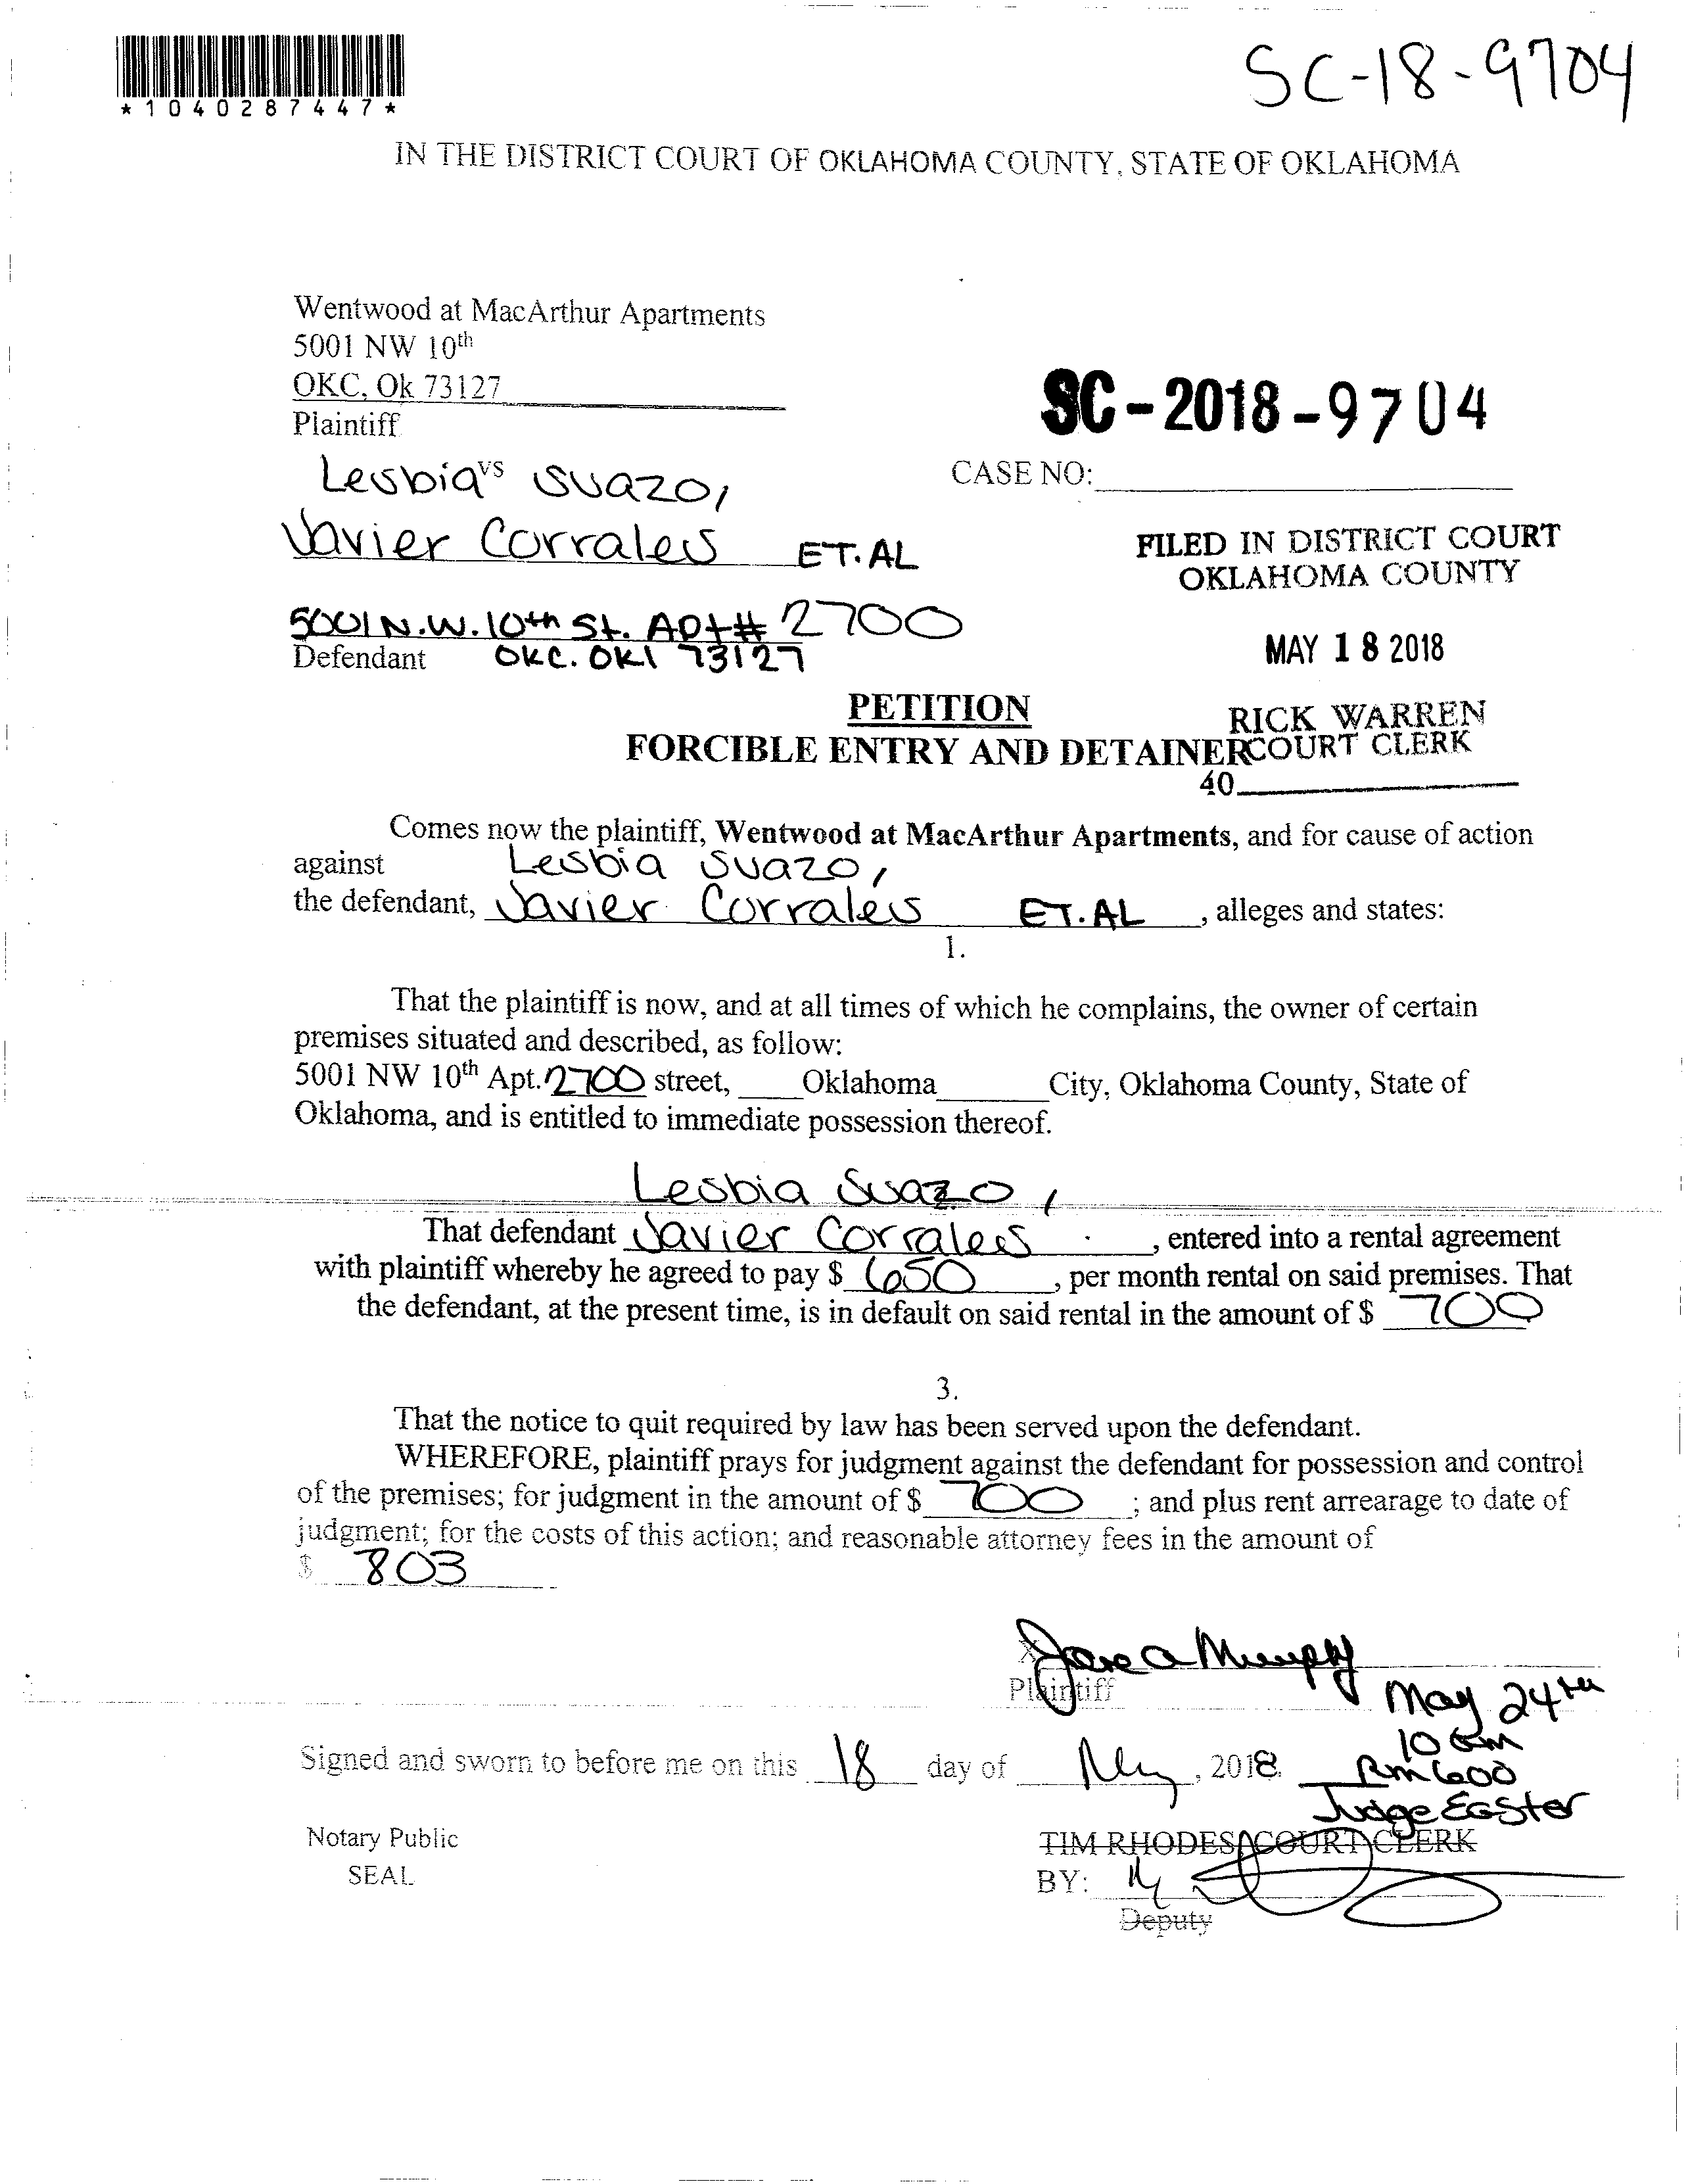 *1040287447*
SC-18-9704
IN THE DISTRICT COURT OF OKLAHOMA COUNTY, STATE OF OKLAHOMA
Wentwood at MacArthur Apartments
5001 NW 10th
OKC, Ok 73127
Plaintiff
SC-2018-9704
vs
CASE NO:
Lesbia Suazo,
Javier Corrales ET.AL
FILED IN DISTRICT COURT
OKLAHOMA COUNTY
5001 N.W. 10th St. Apt# 2700
Defendant OKC. OKl 73127
MAY 18 2018
PETITION
RICK WARREN
FORCIBLE ENTRY AND DETAINER
COURT CLERK
40
Comes now the plaintiff, Wentwood at MacArthur Apartments, and for cause of action
against Lesbia Suazo,
the defendant, Javier Corrales ET.AL, alleges and states:
1.
That the plaintiff is now, and at all times of which he complains, the owner of certain
premises situated and described, as follow:
5001 NW 10th Apt. 2700 street, Oklahoma City, Oklahoma County, State of
Oklahoma, and is entitled to immediate possession thereof.
Lesbia Suazo,
That defendant Javier Corrales, entered into a rental agreement
with plaintiff whereby he agreed to pay $ 650, per month rental on said premises. That
the defendant, at the present time, is in default on said rental in the amount of $ 700
3.
That the notice to quit required by law has been served upon the defendant.
WHEREFORE, plaintiff prays for judgment against the defendant for possession and control
of the premises; for judgment in the amount of $ 700; and plus rent arrearage to date of
judgment; for the costs of this action; and reasonable attorney fees in the amount of
$ 803
X
Plaintiff
May 24th
10 am
Signed and sworn to before me on this 18 day of May, 2018.
Rm 600
Judge Easter
Notary Public
TIM RHODES COURT CLERK
SEAL
BY:
Deputy